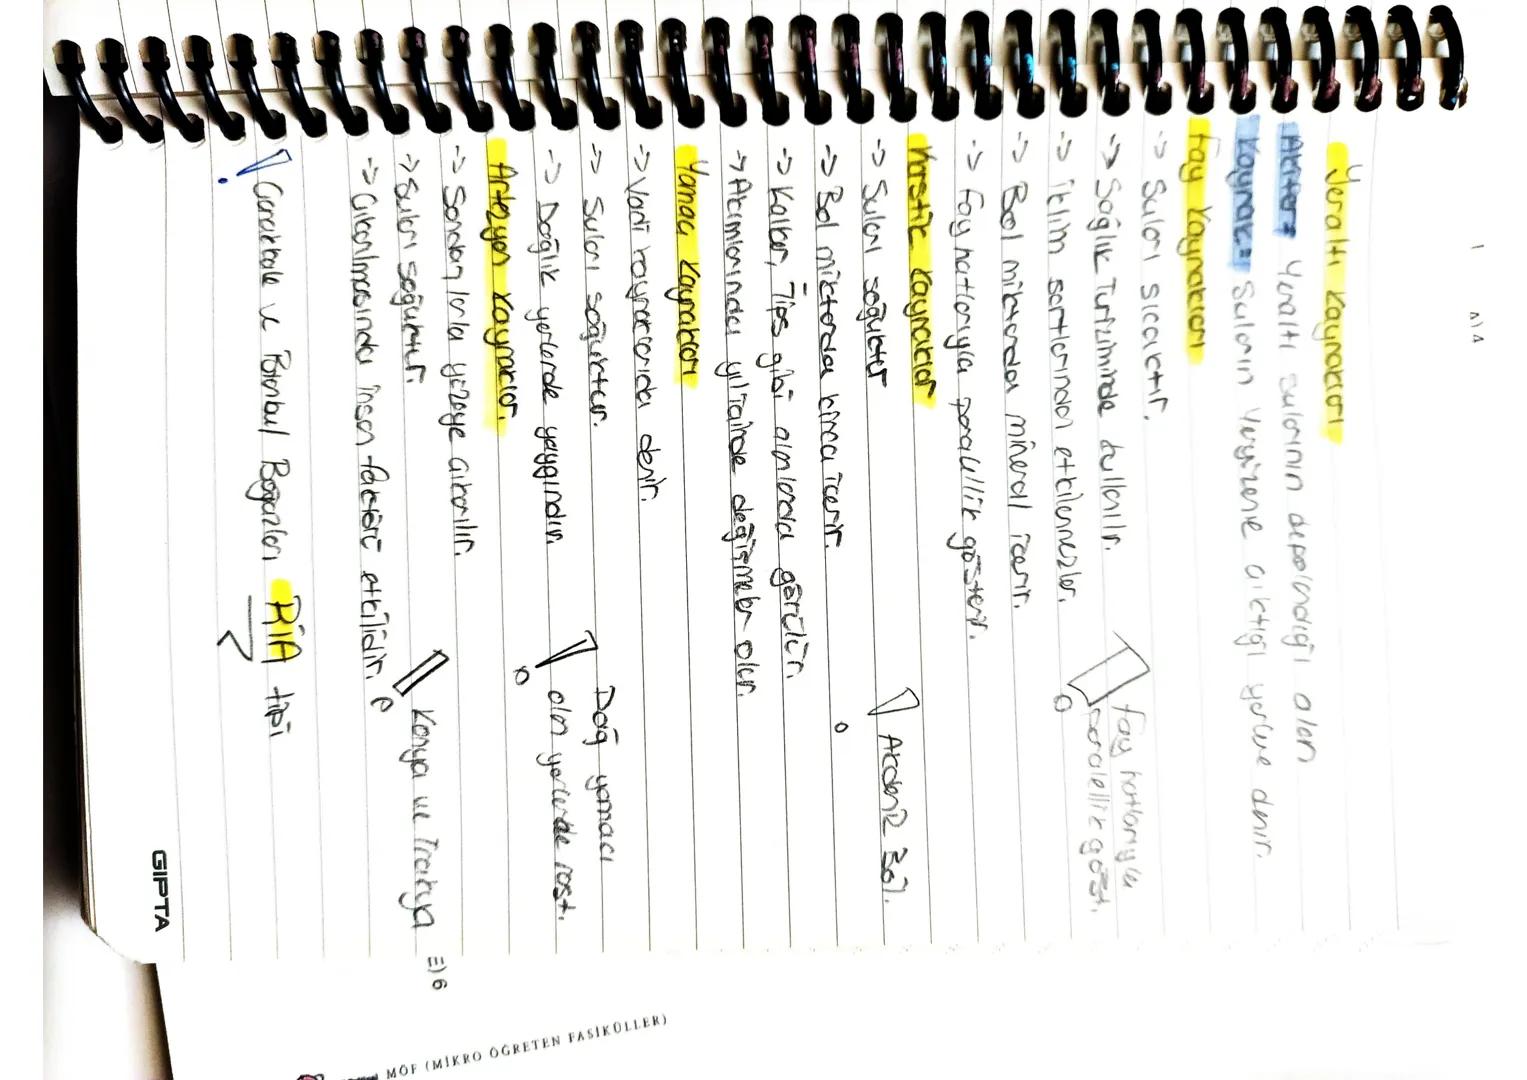 Yeraltı Kaynakları
Akifer= Yeraltı sularının depolandığı alan
Kaynak= Suların Yeryüzüne çıktığı yerlere denir.
Fay Kaynakları
-> Suları sıcaktır.
-> Sağlık Turizminde kullanılır.
-> İklim şartlarından etkilenmezler.
fay hatlarıyla
paralellik göst.
-> Bol miktarda mineral içerir.
-> Fay hatlarıyla paralellik gösterir.
Karstik Kaynaklar
-> Suları soğuktur
! Akdeniz Böl.
-> Bol miktarda kireç içerir.
-> Kalker, Jips gibi alanlarda görülür.
-> Akımlarında yıl içinde değişmeler olur.
Yamaç Kaynakları
-> Vadi kaynaklarıda denir.
-> Suları soğuktur.
-> Dağlık yerlerde yaygındır.
! Dağ yamacı
olan yerlerde rast.
Artezyen Kaynaklar.
-> Sondajlarla yüzeye çıkarılır.
-> Suları soğuktur.
! Konya ve Trakya
-> Çıkarılmasında insan faktörü etkilidir.
! Çanakkale ve İstanbul Boğazları RİA tipi
GIPTA
E) 6
MÖF (MİKRO ÖĞRETEN FASİKÜLLER)